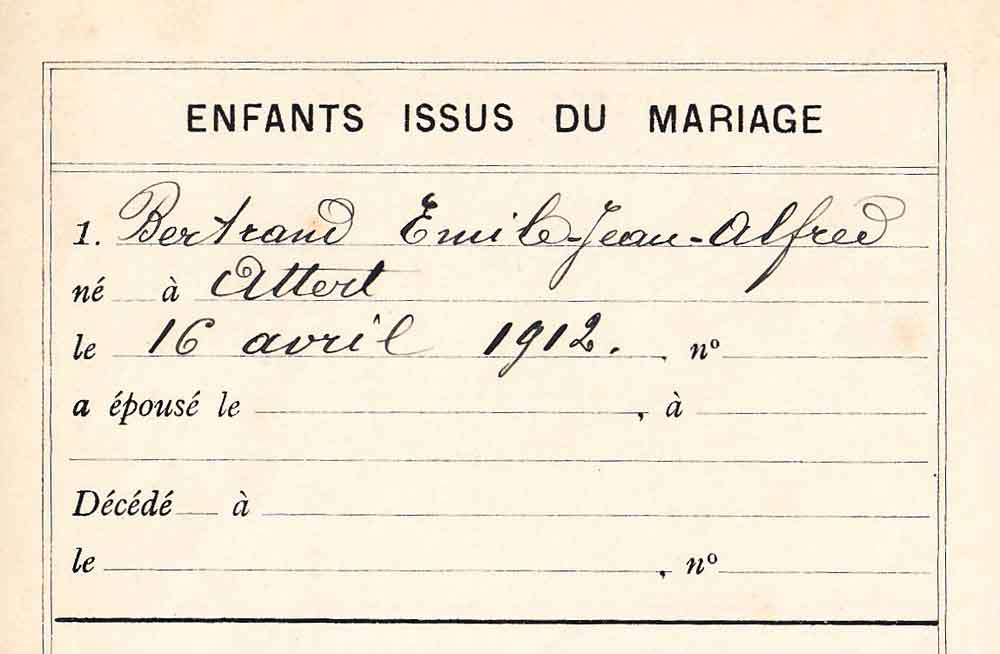 ENFANTS ISSUS DU MARIAGE
1. Bertrand Emile-Jean-Alfred
né à Attert
le 16 avril 1912. , nº
a épousé le , à
Décédé à
le , nº